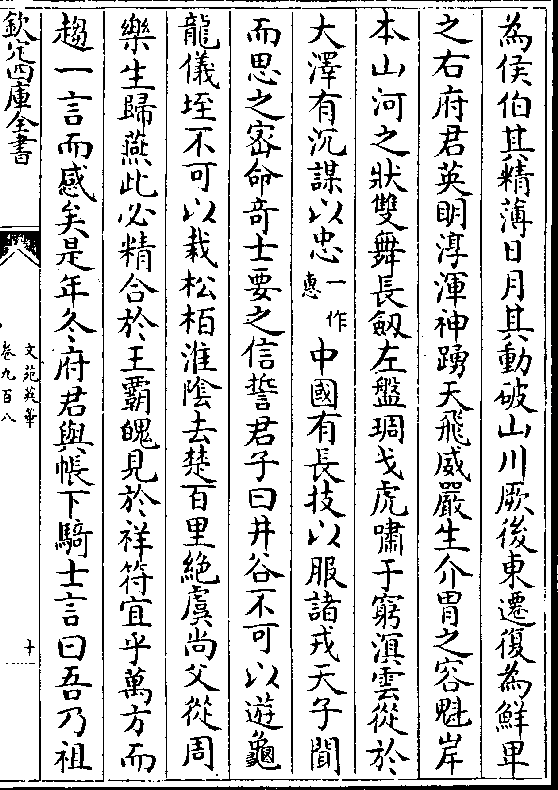 為侯伯其精薄日月其動破山川厥後東遷復為鮮卑
之右府君英明淳渾神踴天飛威嚴生介胄之容魁岸
本山河之狀雙舞長劒左盤琱戈虎嘯于窮溟雲從於
大澤有沉謀以忠一作惠中國有長技以服諸戎天子聞
而思之密命竒士要之信誓君子曰井谷不可以遊龜
龍儀垤不可以栽松栢淮陰去楚百里絶虞尚父從周
樂生歸燕此必精合於王霸魄見於祥符宜乎萬方而
趨一言而感矣是年冬府君與帳下騎士言曰吾乃祖
欽定四庫全書
文苑英華
卷九百八
十